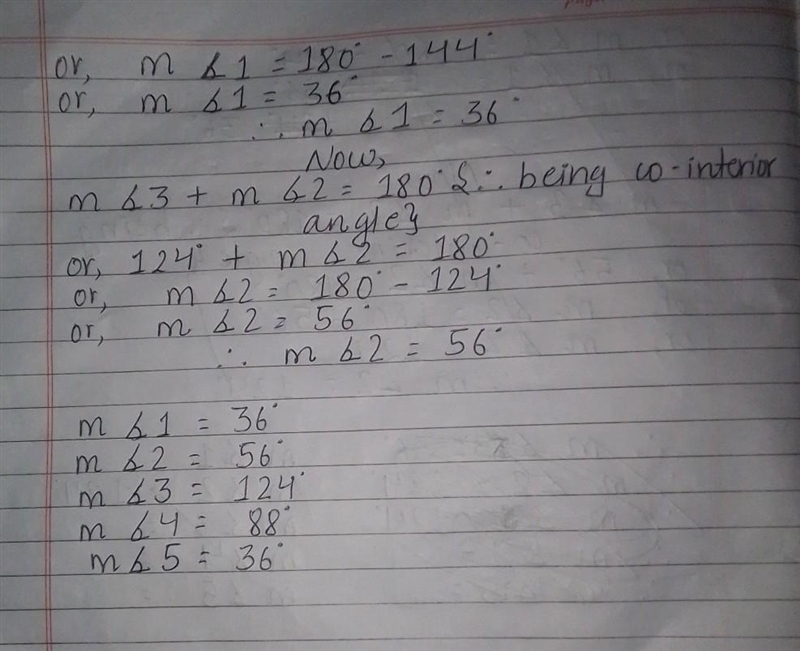 or, m∡1 = 180° - 144°
or, m∡1 = 36°
∴ m∡1 = 36°
Now,
m∡3 + m∡2 = 180° {∵ being co-interior
angle}
or, 124° + m∡2 = 180°
or, m∡2 = 180° - 124°
or, m∡2 = 56°
∴ m∡2 = 56°
m∡1 = 36°
m∡2 = 56°
m∡3 = 124°
m∡4 = 88°
m∡5 = 36°